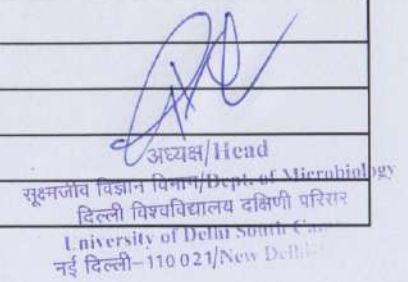 अध्यक्ष/Head
सूक्ष्मजीव विज्ञान विभाग/Dept. of Microbiology
दिल्ली विश्वविद्यालय दक्षिणी परिसर
University of Delhi South
नई दिल्ली-110 021/New Delhi